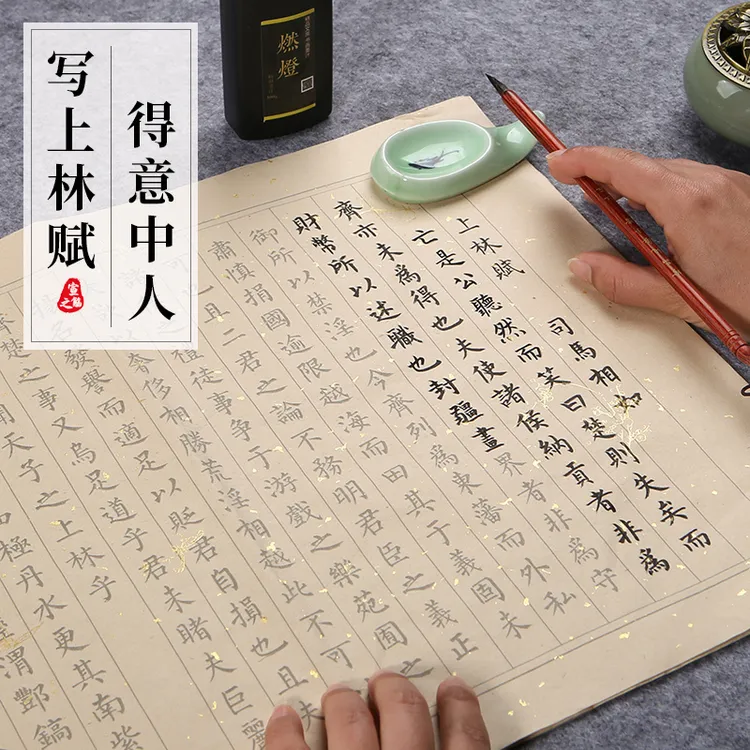 得意中人
写上林赋
燃燈
上林賦 司馬相如
亡是公聽然而笑曰楚則失矣而
齊亦未為得也夫使諸侯納貢者非為
財幣所以述職也封疆畫界者非為守
御所以禁淫也今齊列為東藩而外私
肅慎捐國逾限越海而田其于義固未
且二君之論不務明君臣之義正
徒事爭于游戲之樂苑囿之
奢侈相勝荒淫相越此不可
名發譽而適足以貶君自損也且夫
楚之事又烏足道乎君未睹夫巨麗
聞天子之上林乎
極丹水更其南紫
渭酆鎬